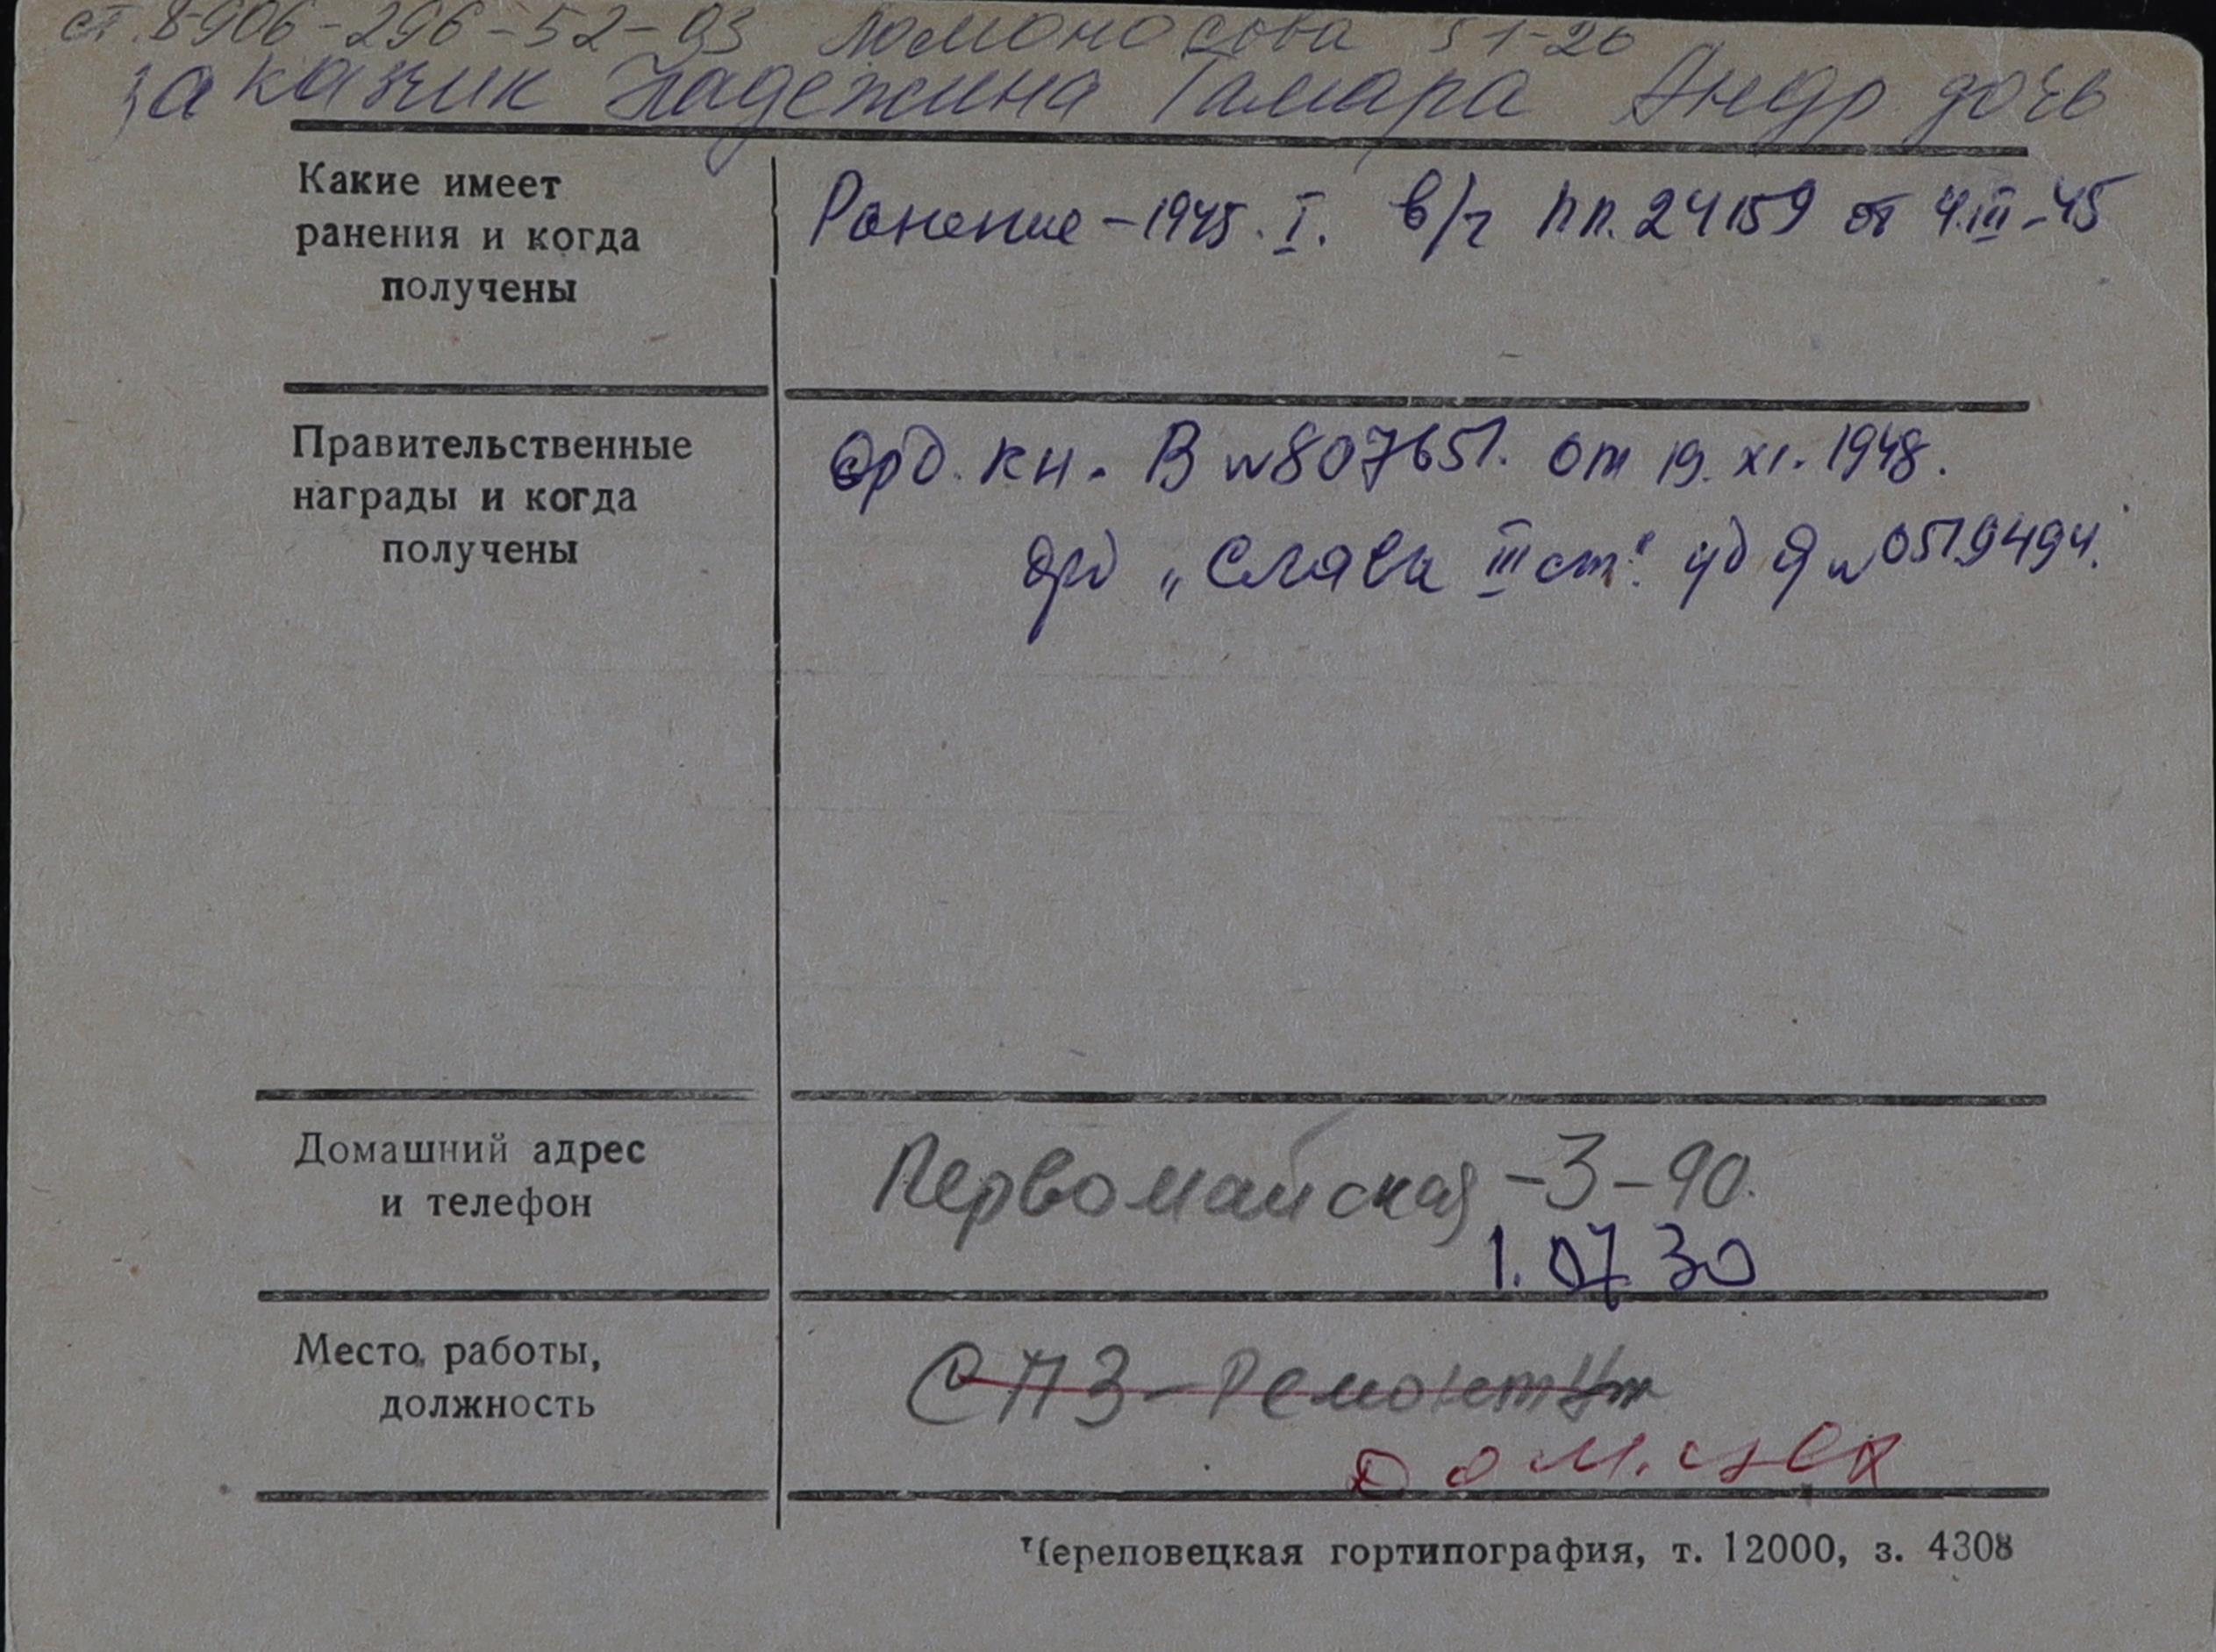 ст. 8-906-296-52-03 Ломоносова 51-26
заказчик Надежина Тамара Андр. дочь
Какие имеет
ранения и когда
получены
Ранение – 1945. I. в/ч пп. 24159 от 4.III-45
Правительственные
награды и когда
получены
Орд. кн. В № 807651. от 19. XI. 1948.
орд „Слава III ст." уд № 0519494.
Домашний адрес
и телефон
Первомайская - 3 - 90.
1. 07 30
Место работы,
должность
СПЗ - Ремонт
Дом.
Череповецкая гортипография, т. 12000, з. 4308